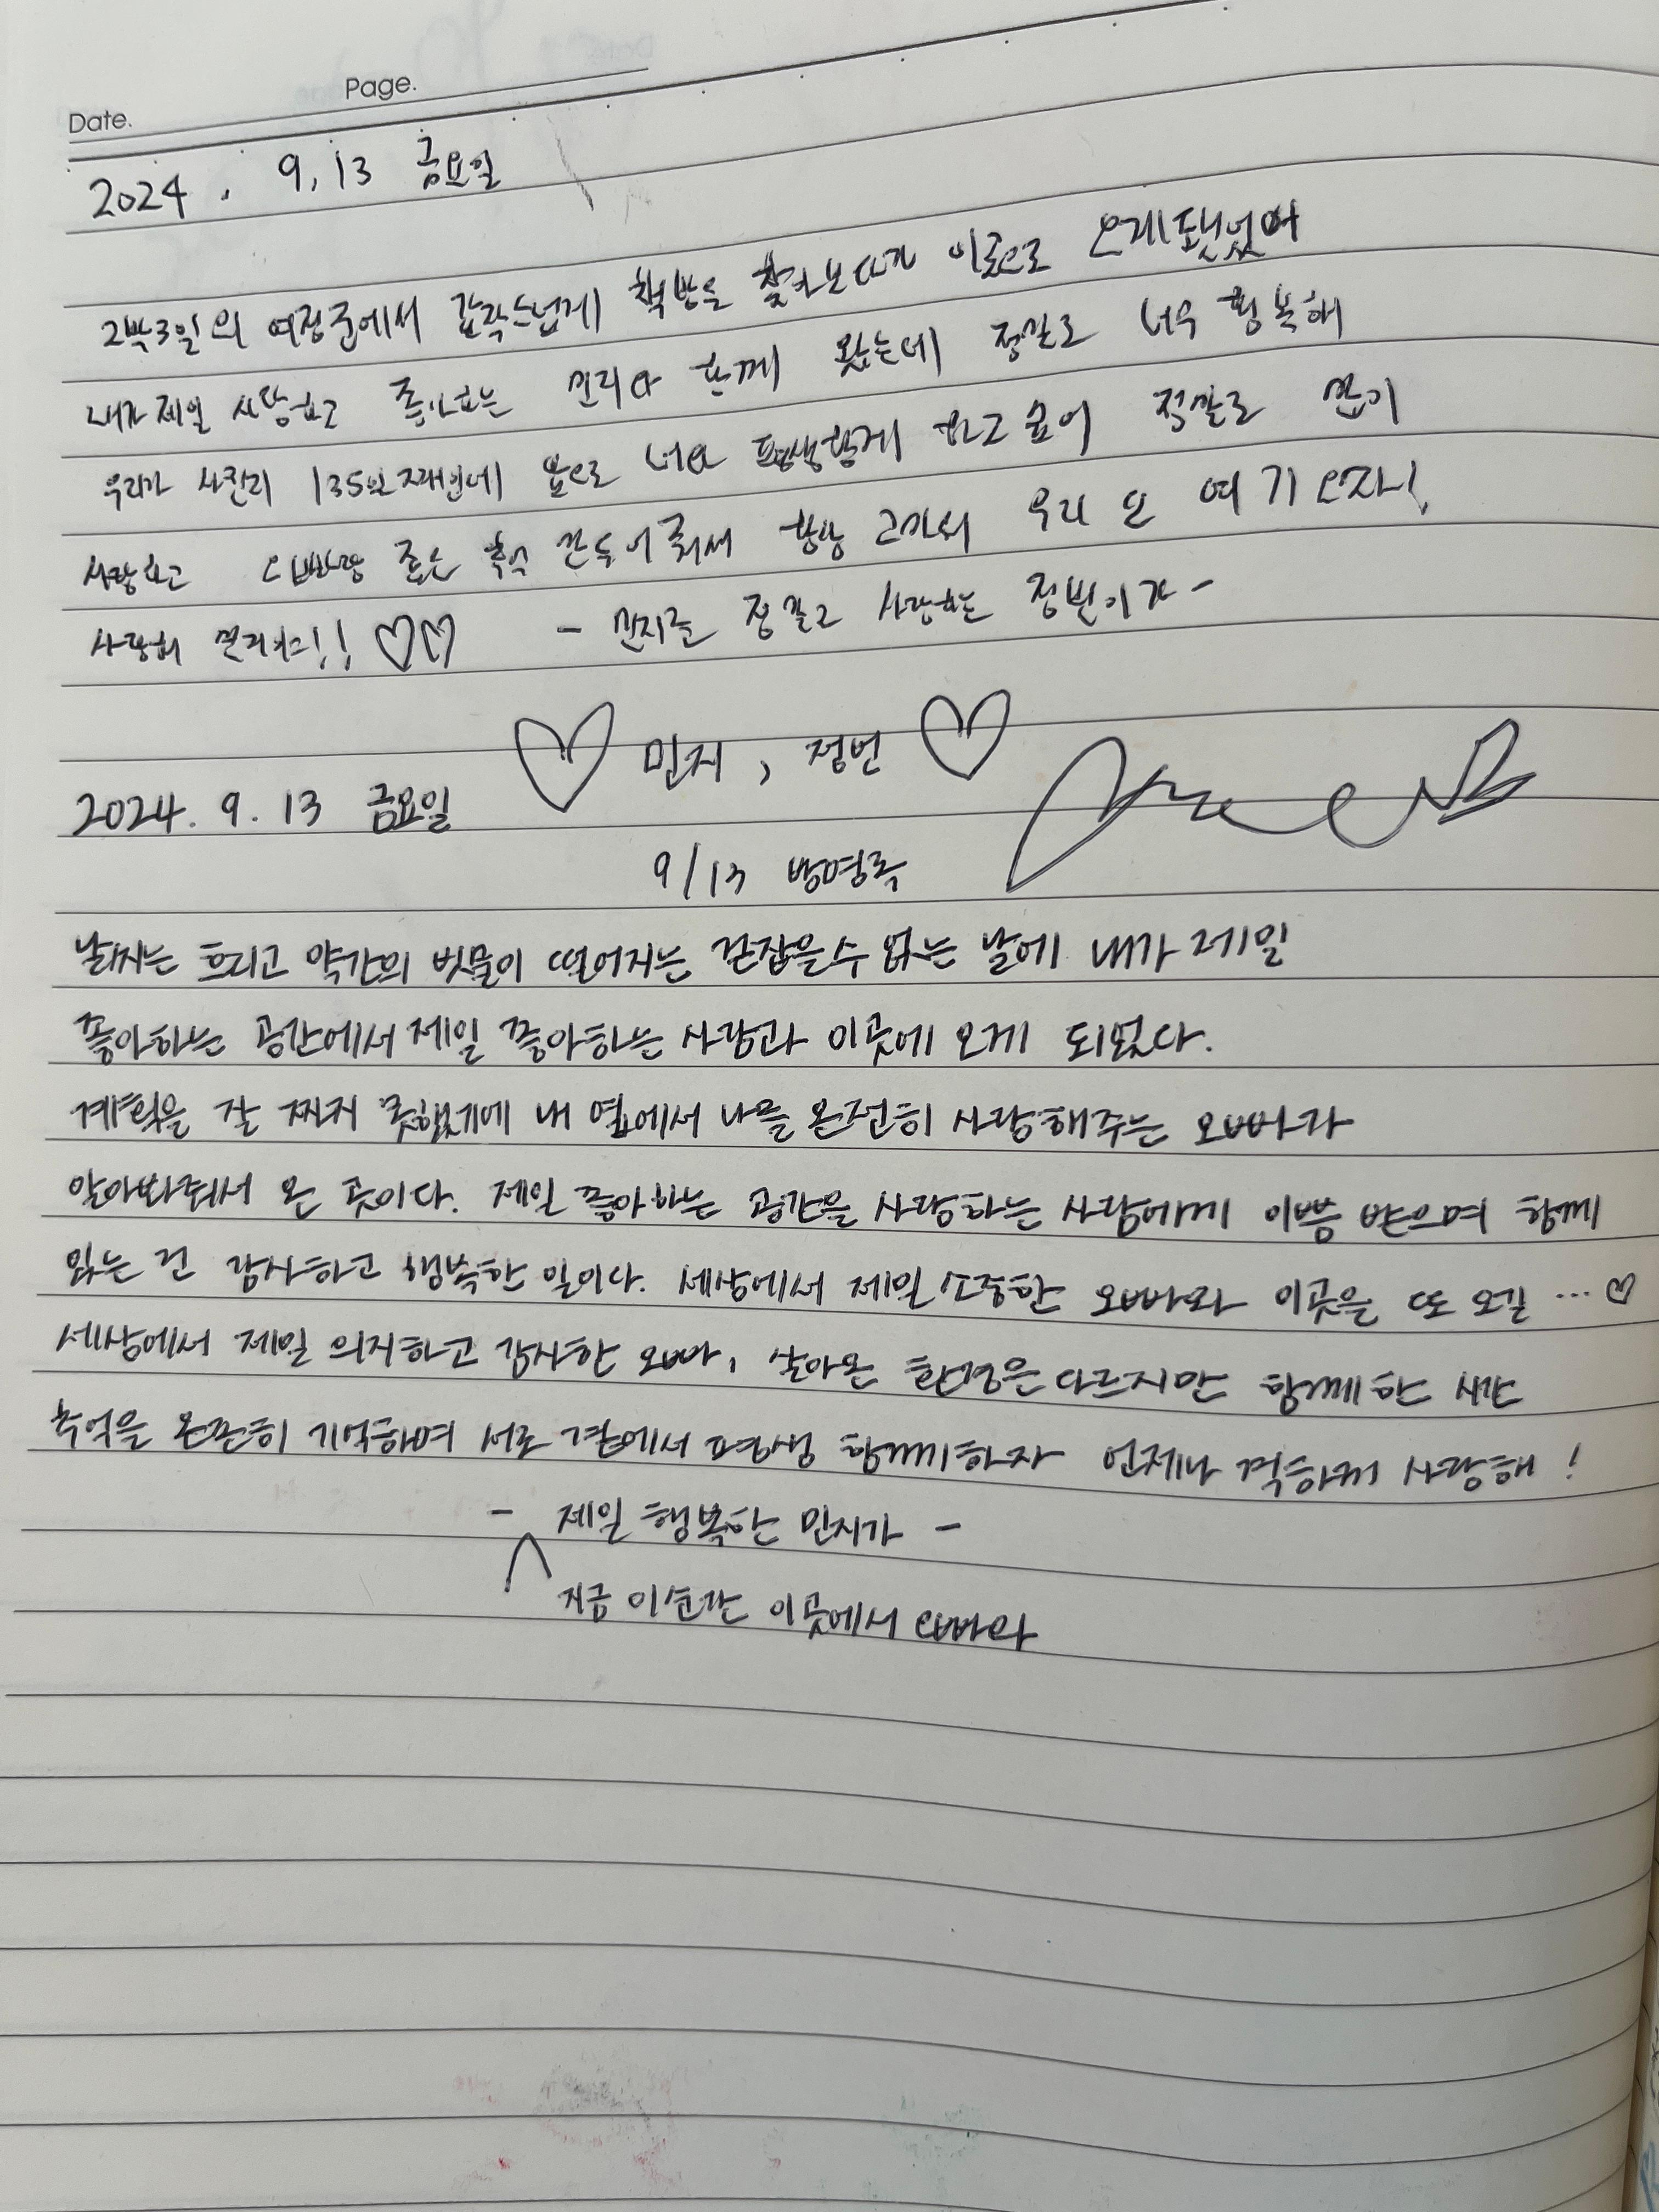 Page.
Date.
2024. 9, 13 금요일
2박3일의 여정중에서 갑작스럽게 책방을 찾아보다가 이곳으로 오게됐었어
내가 제일 사랑하고 좋아하는 민지와 함께 왔는데 정말로 너무 행복해
우리가 사귄지 135일째인데 앞으로 너와 평생함께 하고싶어 정말로 많이
사랑하고 오빠랑 좋은 추억 만들어줘서 항상 고마워 우리 또 여기 오자!
사랑해 민지야!! ♡♡ - 민지를 정말로 사랑하는 정빈이가 -
♡ 민지, 정빈 ♡
2024. 9. 13 금요일
9/13 방영록
날씨는 흐리고 약간의 빗물이 떨어지는 걷잡을수 없는 날에 내가 제일
좋아하는 공간에서 제일 좋아하는 사람과 이곳에 오게 되었다.
계획을 잘 짜지 못했기에 내 옆에서 나를 온전히 사랑해주는 오빠가
알아봐줘서 온 곳이다. 제일 좋아하는 공간을 사랑하는 사람에게 이쁨 받으며 함께
있는 건 감사하고 행복한 일이다. 세상에서 제일 소중한 오빠와 이곳을 또 오길 ... ♡
세상에서 제일 의지하고 감사한 오빠, 살아온 환경은 다르지만 함께한
추억을 온전히 기억하며 서로 곁에서 평생 함께하자 언제나 사랑해!
- 제일 행복한 민지가 -
지금 이순간 이곳에서 오빠와